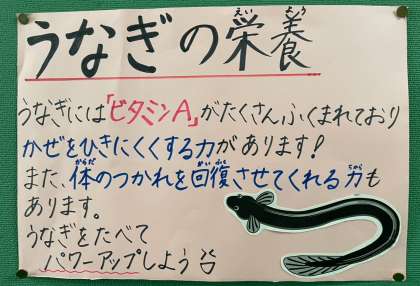 うなぎの栄養
うなぎには「ビタミンA」がたくさんふくまれており
かぜをひきにくくする力があります!
また、体のつかれを回復させてくれる力も
あります。
うなぎをたべて
パワーアップしよう